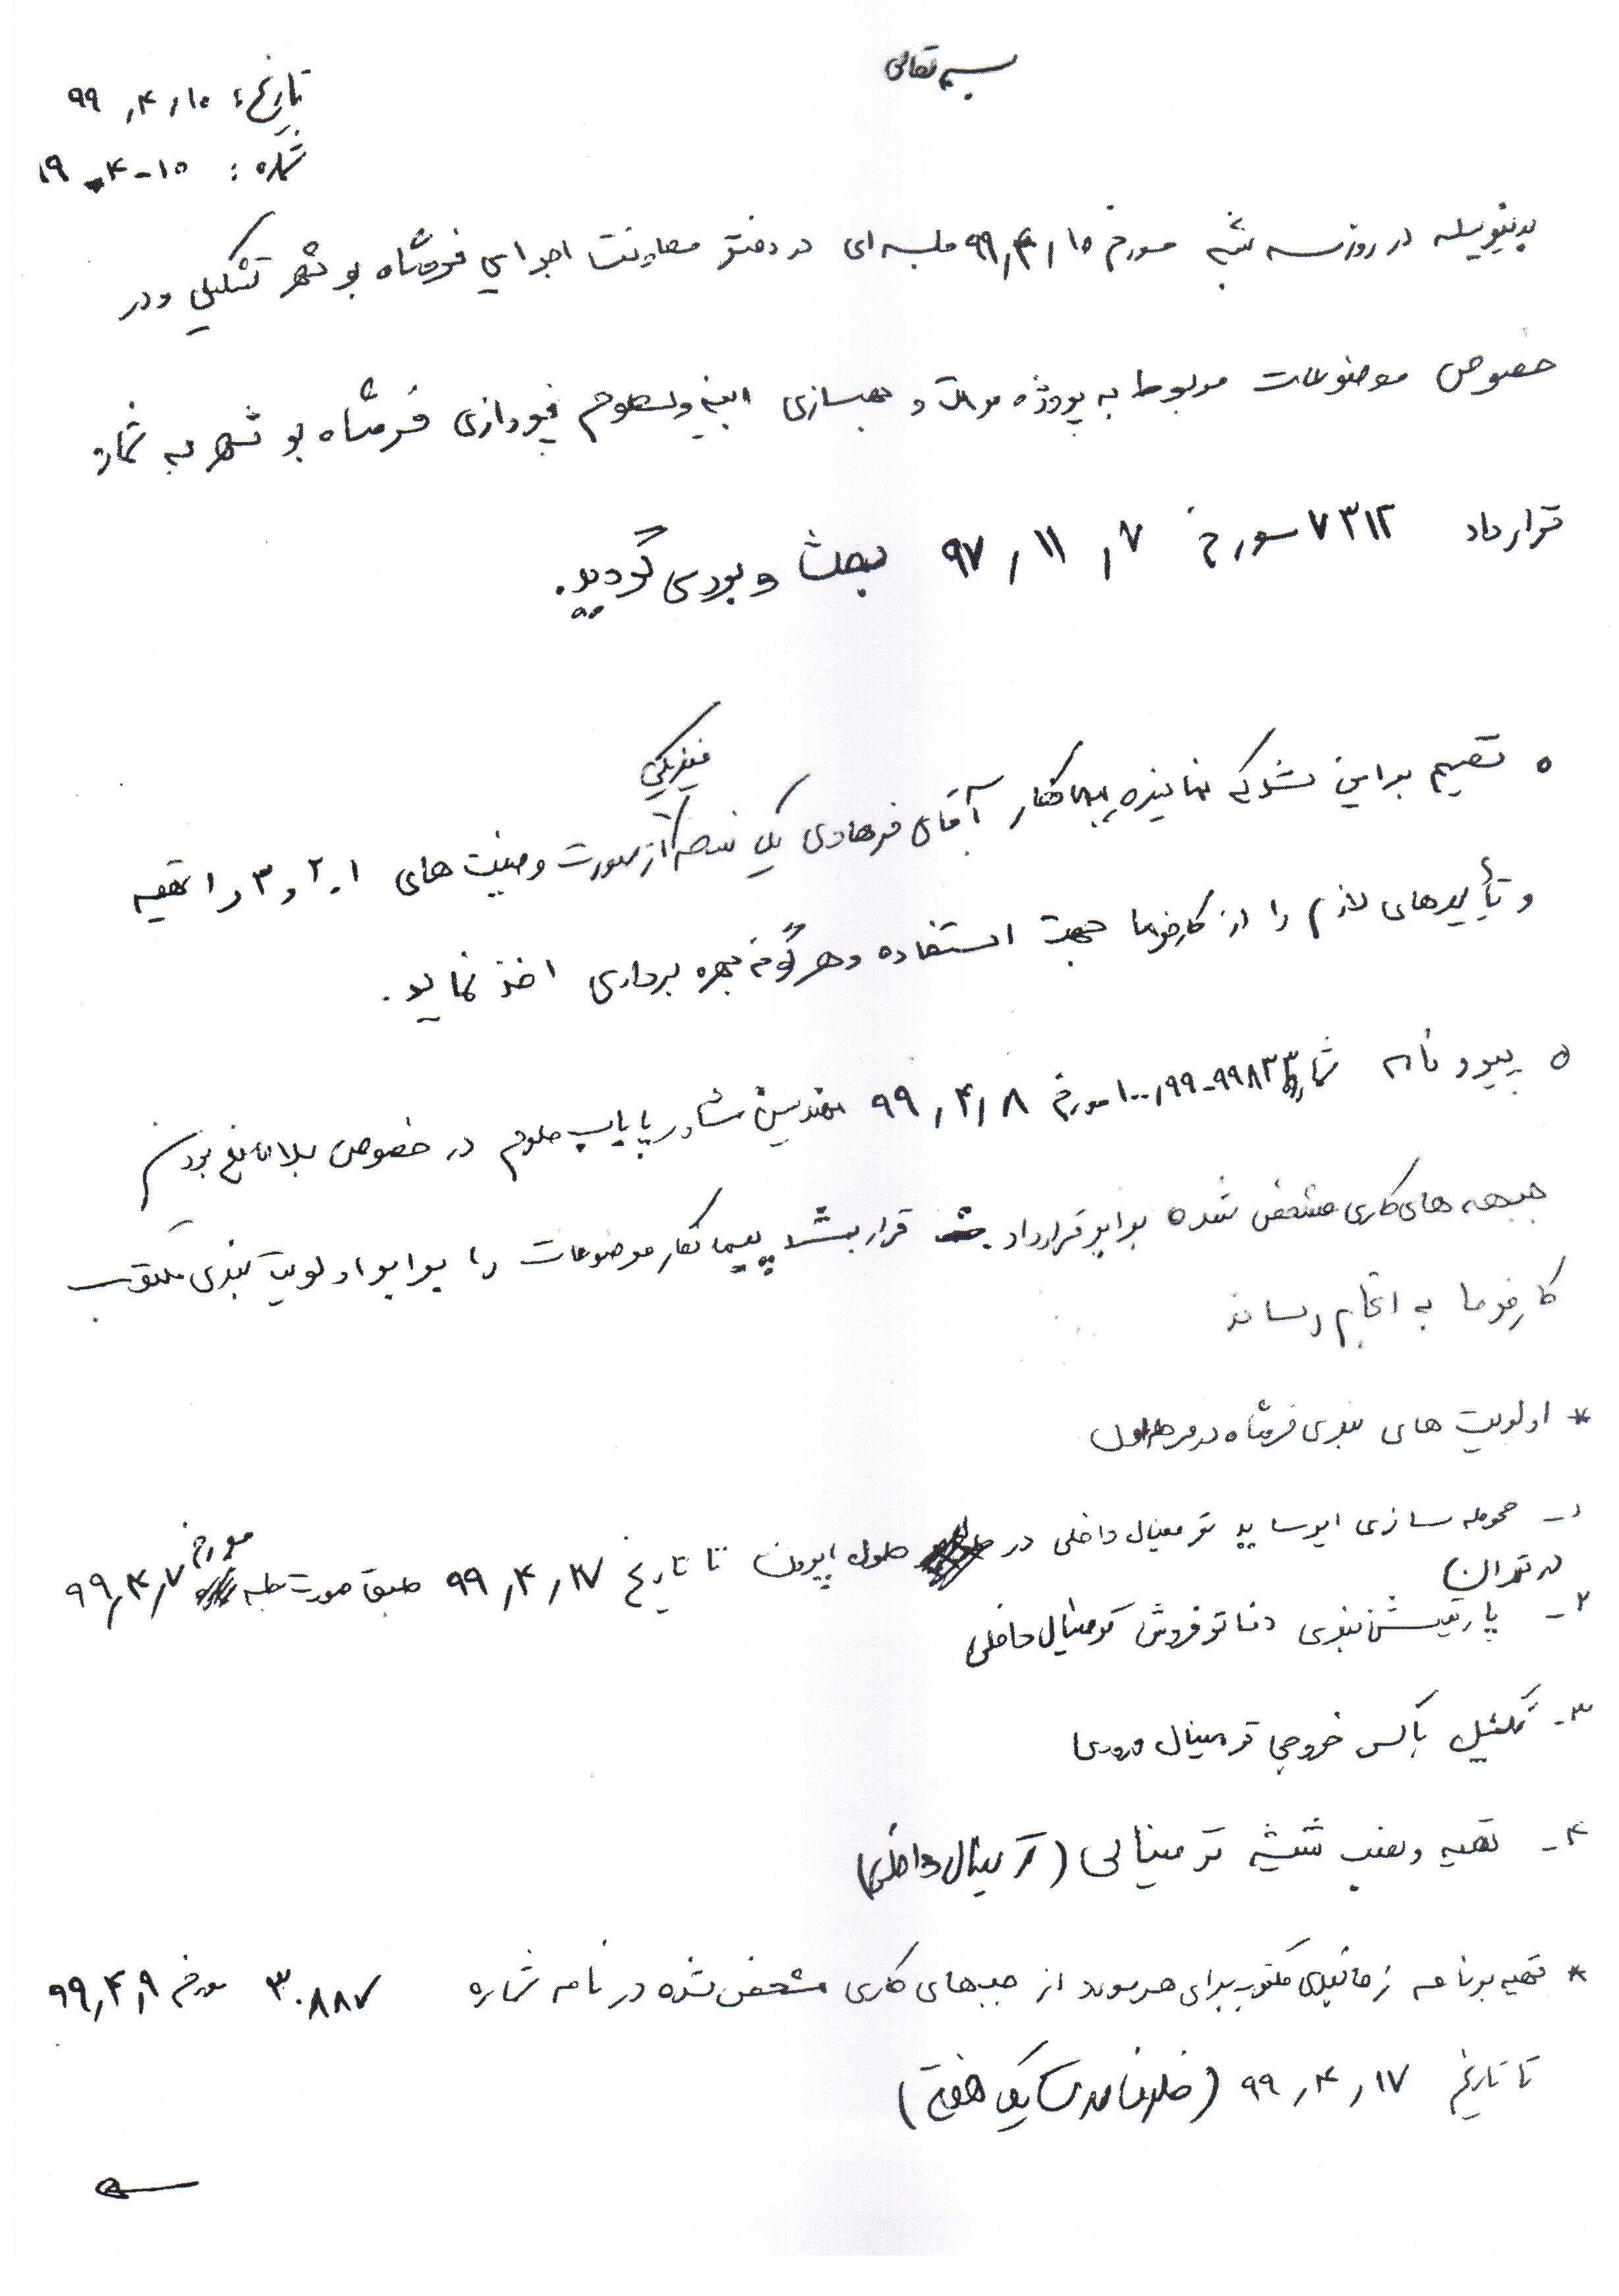 بسمه تعالی
تاریخ: ۹۹/۴/۱۰
شماره: ۱۰-۴-۹۹
بدینوسیله در روز سه شنبه مورخ ۹۹/۴/۱۰ جلسه ای در دفتر معاونت اجرایی فرودگاه بوشهر تشکیل و در
خصوص موضوعات مربوط به پروژه مرمت و بهسازی ابنیه و سطوح پروازی فرودگاه بوشهر به شماره
قرارداد ۷۳۱۲ مورخ ۹۷/۱۱/۷ بحث و بررسی گردید.
o تصمیم بر این شد که نماینده پیمانکار آقای فرهادی یک نسخه فیزیکی از صورت وضعیت های ۱، ۲ و ۳ را تهیه
و تأییدهای لازم را از کارفرما جهت استفاده و هر گونه بهره برداری اخذ نماید.
o پیرو نامه شماره ۹۹۸۳۳-۱۰۰/۹۹ مورخ ۹۹/۴/۸ مهندسین مشاور پایاب ملوم در خصوص بلامانع بودن
جبهه های کاری مشخص شده برابر قرارداد قرار شد پیمانکار موضوعات را برابر اولویت بندی مکتوب
کارفرما به اتمام رساند
* اولویت های بندی فرودگاه در مرحله اول
۱- محوطه سازی ایرساید ترمینال داخلی در طول اپرون تا تاریخ ۹۹/۴/۲۷ طبق صورت جلسه مورخ ۹۹/۴/۷
در تهران)
۲- پارتیشن بندی دفاتر فروش ترمینال داخلی
۳- تکمیل باکس خروجی ترمینال ورودی
۴- تهیه و نصب شیشه ترمینالی (ترمینال داخلی)
* تهیه برنامه زمانبندی مکتوب برای هر مورد از جبهه های کاری مشخص شده در نامه شماره ۳۰۸۸۷ مورخ ۹۹/۴/۹
تا تاریخ ۹۹/۴/۱۷ (ظرف مدت یک هفته)